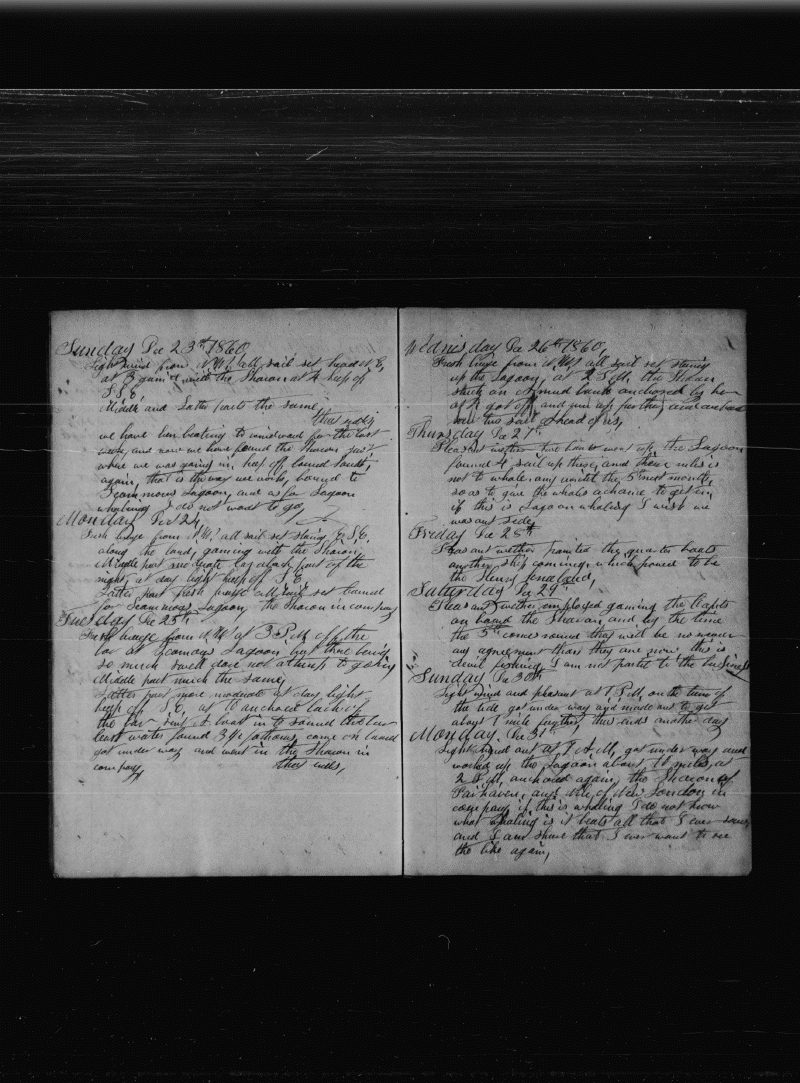 Sunday Dec 23rd 1860,
Light wind from N.W. all sail set head N E,
at 8 gam with the Sharon at 4 keep of
S.S.E,
Middle and Latter parts the same,
thus ends
we have ben beating to windward for the last
week and now we have found the Sharon just
where we was going in, keep off bound South,
again, that is the way we work, bound to
Scammons Lagoon, and as for Lagoon
whaling I do not want to go,
Monday Dec 24,
Fresh breeze from N.W. all sail set staring E.S.E.
along the land, gaming with the Sharon
Middle part moderate lay aback part of the
night, at day light keep of S.E.
Latter part fresh breeze all sail set bound
for Scammons Lagoon, the Sharon in company
Tuesday Dec 25th
Fresh breeze from N.W. at 3 P.M. off the
bar at Scamons Lagoon but thare being
so much swell dare not attempt to go in
Middle part much the same,
Latter part more moderate at day light
keep off S.E. at 10 anchored back of
the bar sent a boat in to sound the bar
least water found 3 1/4 fathoms, come on board
got under way and went in the Sharon in
company, thus ends,
Wednisday Dec 26th 1860,
Fresh breeze from N.W. all sail set staring
up the Lagoon, at 2 P.M. the Sharon
struck on a mud bank anchored by her
at 4 got off and run up further and anchored
one sail ahead of us,
Thursday Dec 27th
Pleasant wether two boats went up the Lagoon
found 4 sail up there, and thare rules is
not to whale any untill the 5 next month,
so as to give the whales a chance to get in,
if this is Lagoon whaling I wish we
was out side,
Friday Dec 28th
Pleasant wether painted the quarter boats
another ship coming, which proved to be
the Henry Kneeland,
Saturday Dec 29th
Pleasant wether employed gaming the Capts
on board the Sharon, and by the time
the 5th comes round they will be no nearer
any agreement than they are now this is
I am not partet to the business
Sunday Dec 30th
Light wind and pleasant at 1 P.M, on the turn of
the tide got under way and made out to get
about 1 mile further thus ends another day
Monday, Dec 31st
Light wind out at 7 A.M, got under way and
worked up the Lagoon about 10 miles, at
2 P.M, anchored again, the Sharon of
Fairhaven, and Nile of New London in
company if this is whaling I do not know
what whaling is it beats all that I ever saw,
and I am shure that I ever want to see
the like again,